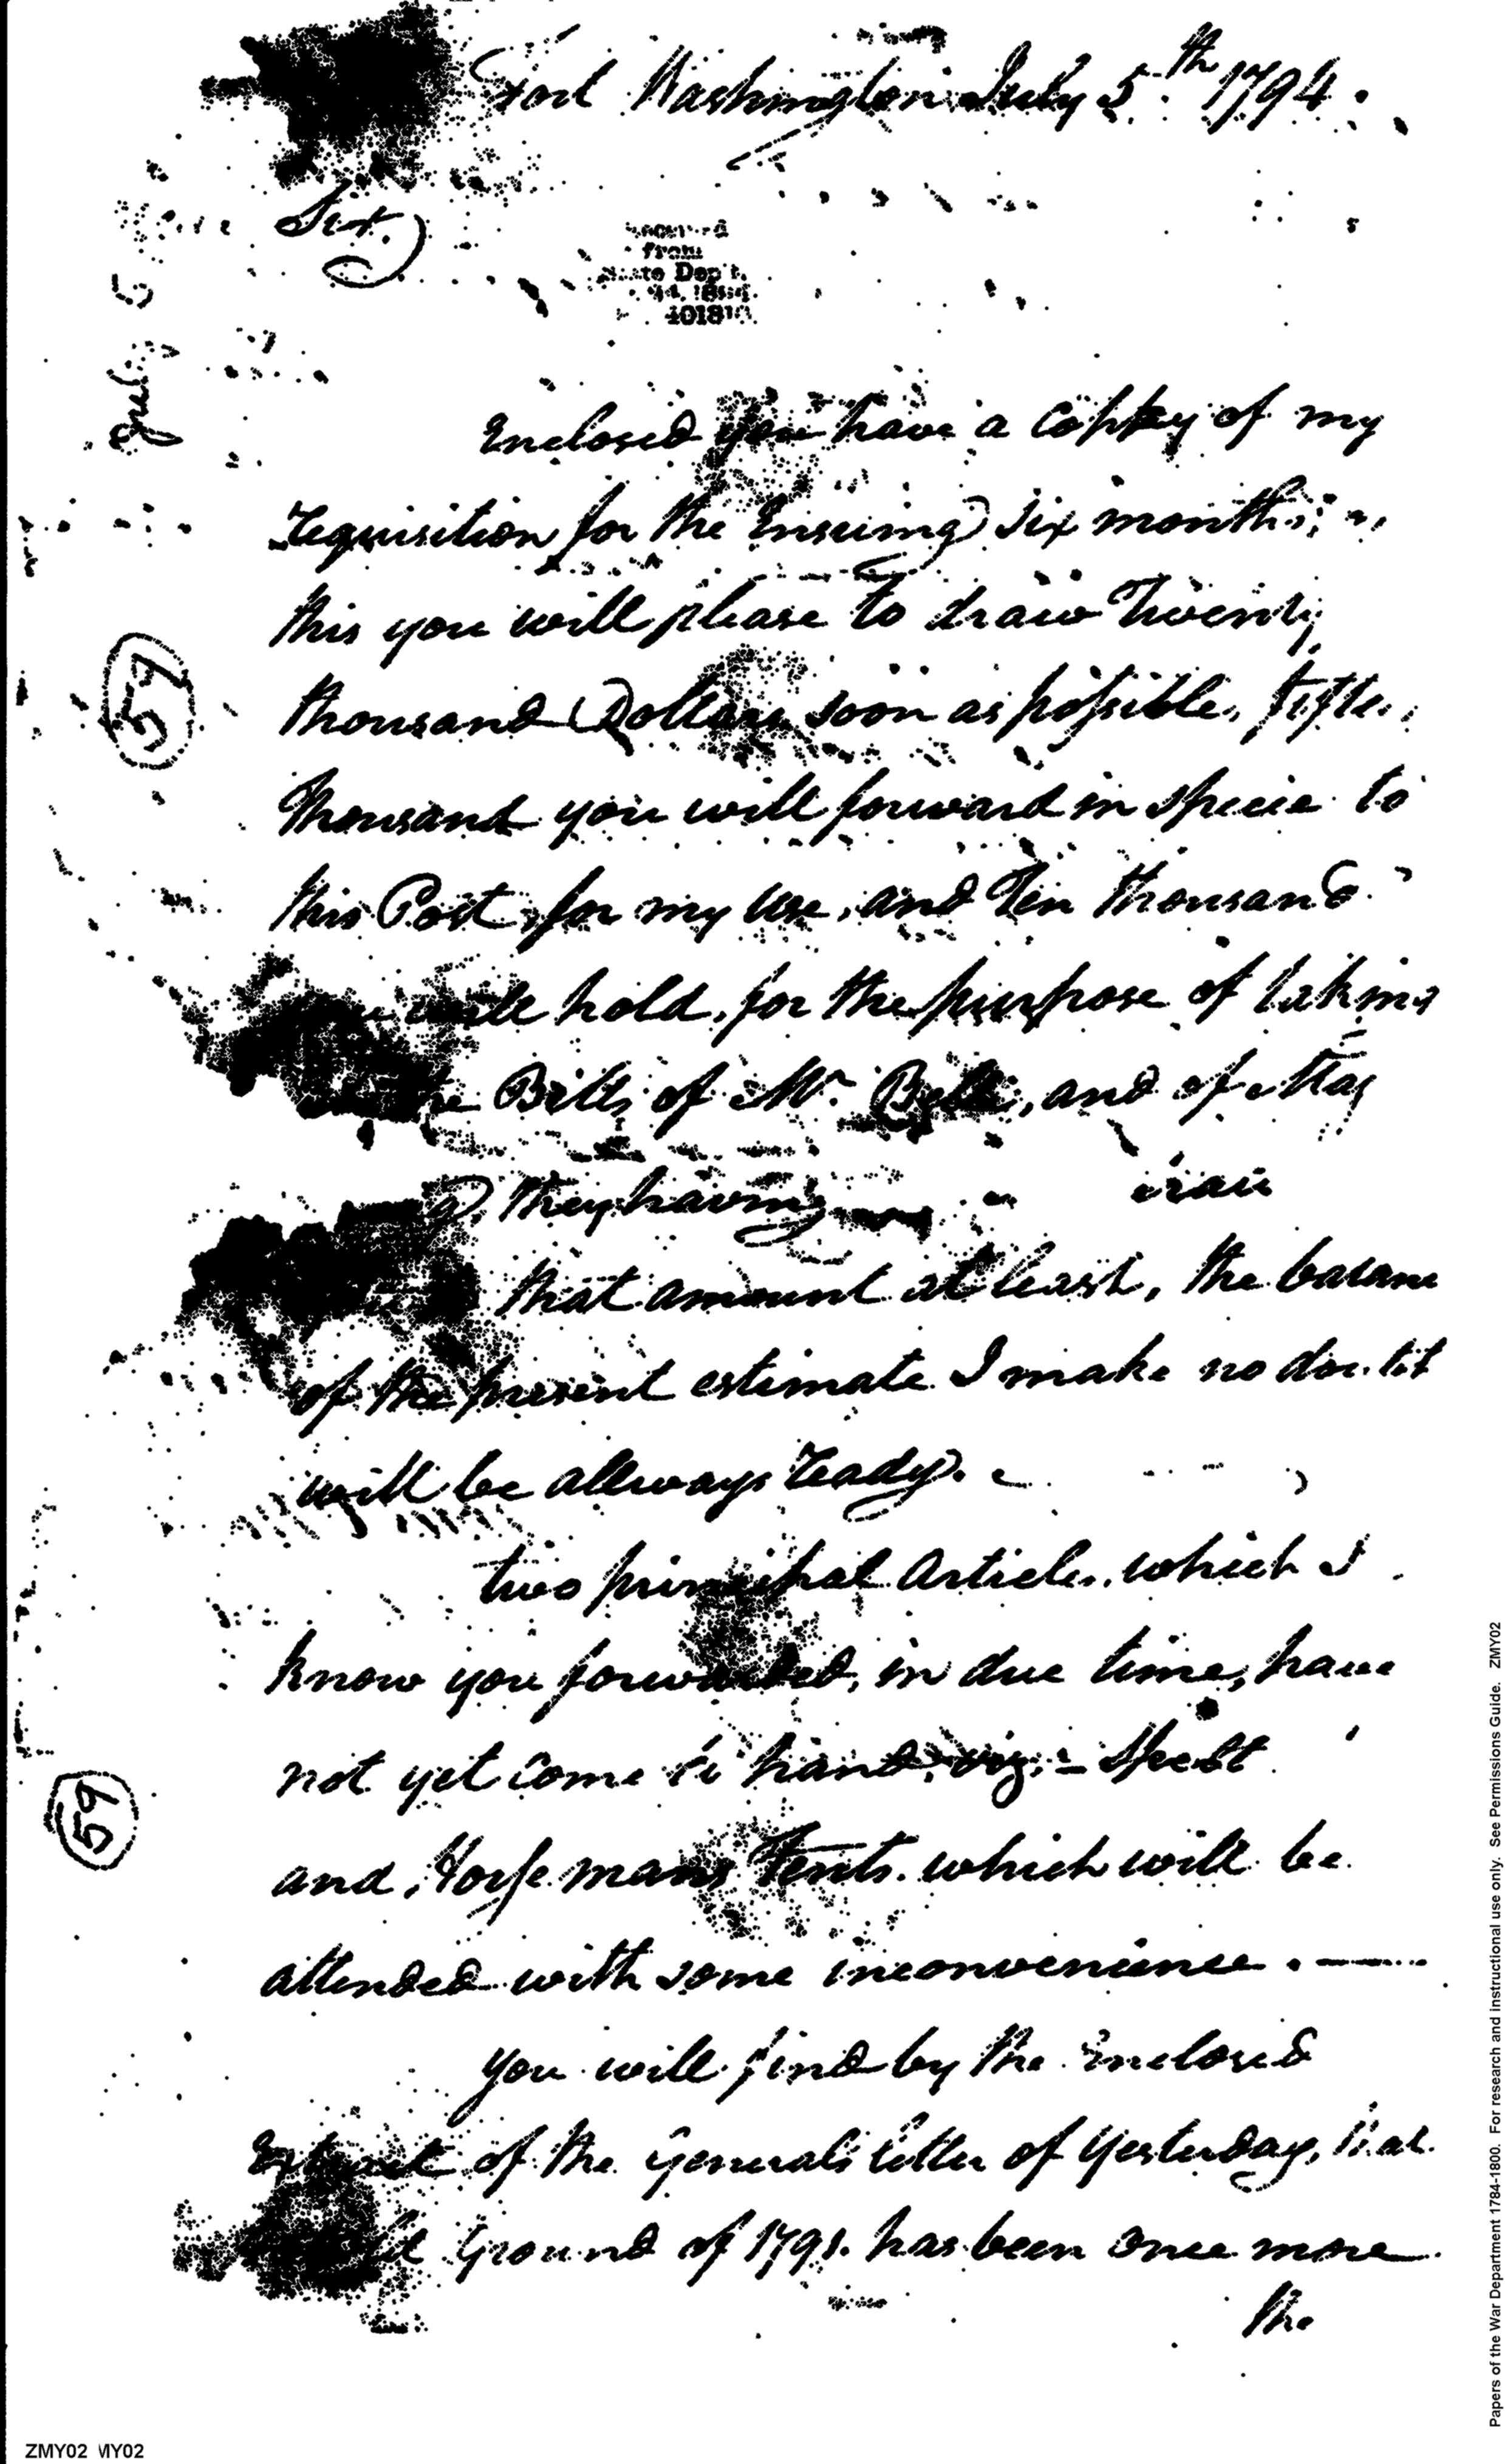 Fort Washington July 5th 1794.
Sir.
from
State Dep't.
Enclosed you have a Coppy of my
requisition for the Ensuing Six months;
this you will please to draw Twenty
thousand Dollars soon as possible,
thousand you will forward in specie to
this Post, for my Use, and Ten thousand
will hold, for the purpose of taking
the Bills of Mr. Belli, and of Maj
they having draw
that amount at least, the balance
of the present estimate I make no doubt
will be allways ready.
two principal Articles, which I
know you forwarded, in due time, have
not yet come to hand, viz. -
and, Horse mans Tents. which will be
attended with some inconvenience. —
You will find by the Enclosed
Extract of the Generals letter of Yesterday, that
Ground of 1791. has been once more
the
July 5
59
59
Papers of the War Department 1784-1800. For research and instructional use only. See Permissions Guide. ZMY02
ZMY02 MY02